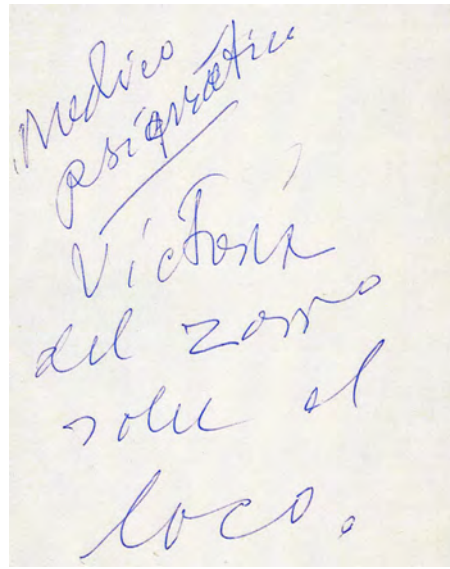 Medico
psiquiátrico
Victoria
del zorro
sobre el
loco.